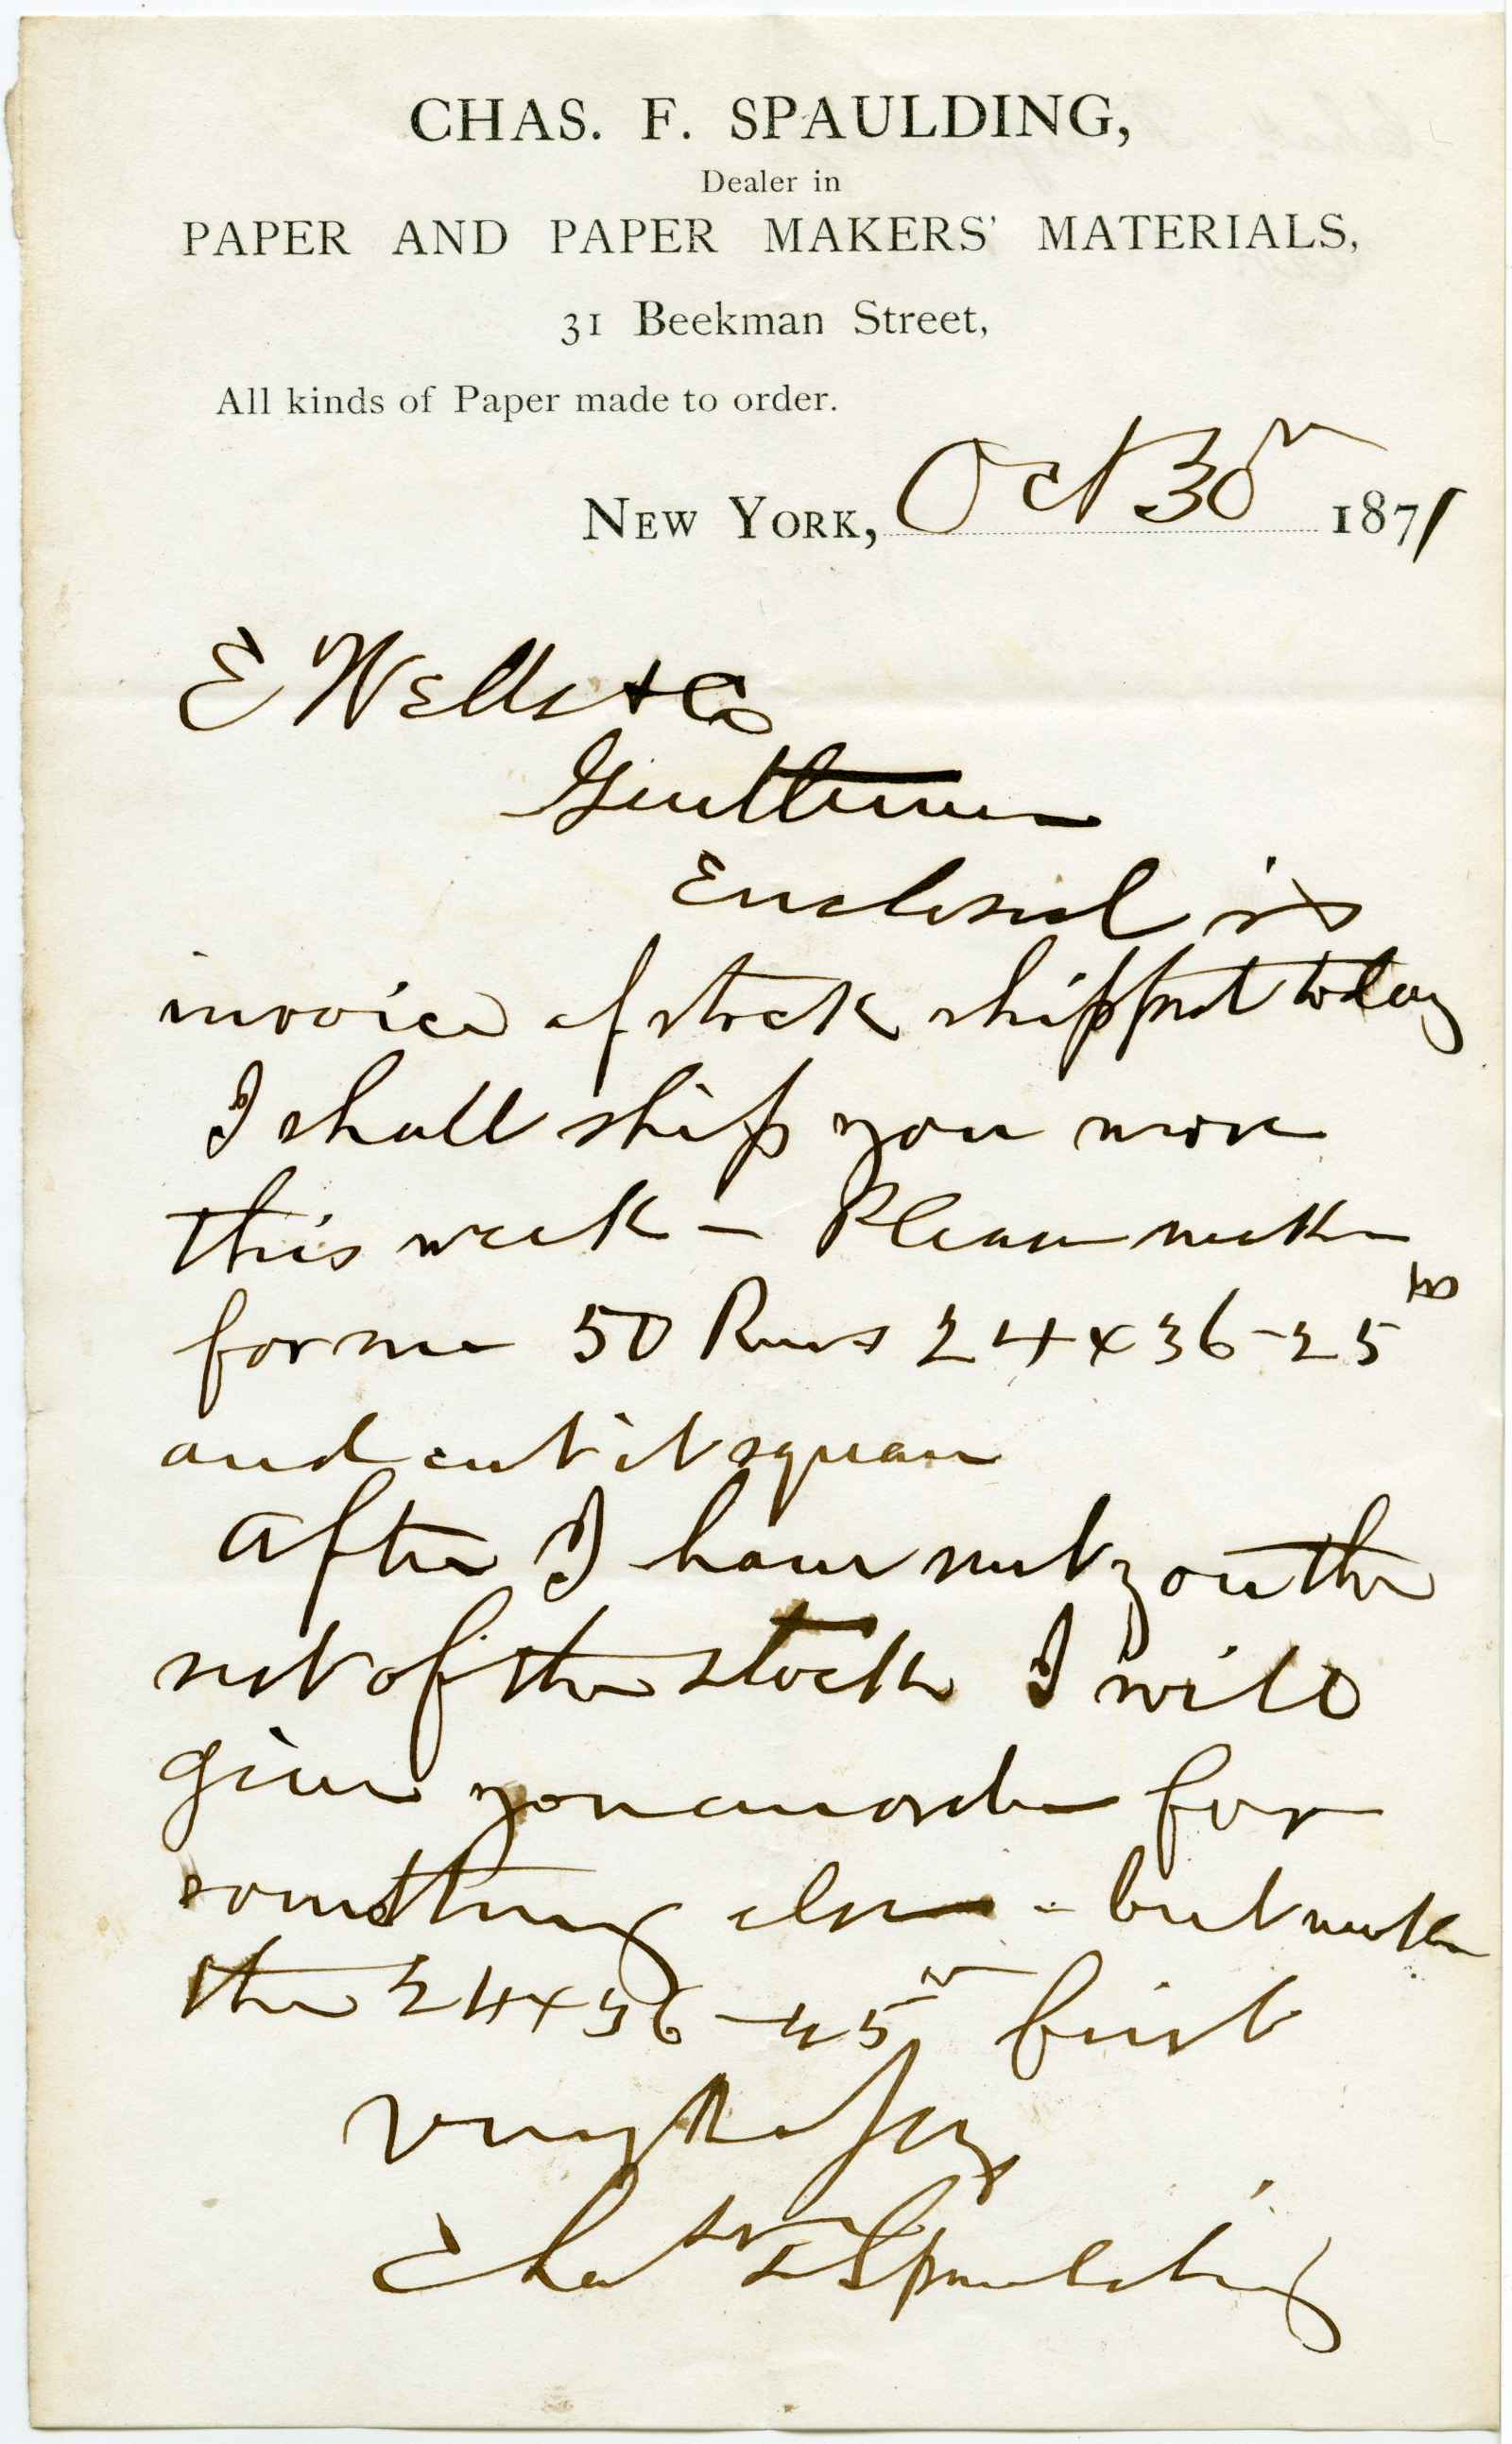 CHAS. F. SPAULDING,
Dealer in
PAPER AND PAPER MAKERS' MATERIALS,
31 Beekman Street,
All kinds of Paper made to order.
NEW YORK, Oct 30th 1871
E Wells & Co
Gentlemen
Enclosed is
invoice of stock shipped today
I shall ship you more
this week - Please make
for me 50 Rms 24 x 36 - 25 lbs
and cut it square
After I have sent you the
rest of the stock I will
give you an order for
something else - but make
the 24 x 36 - 25 first
Very Resply
Chas F Spaulding